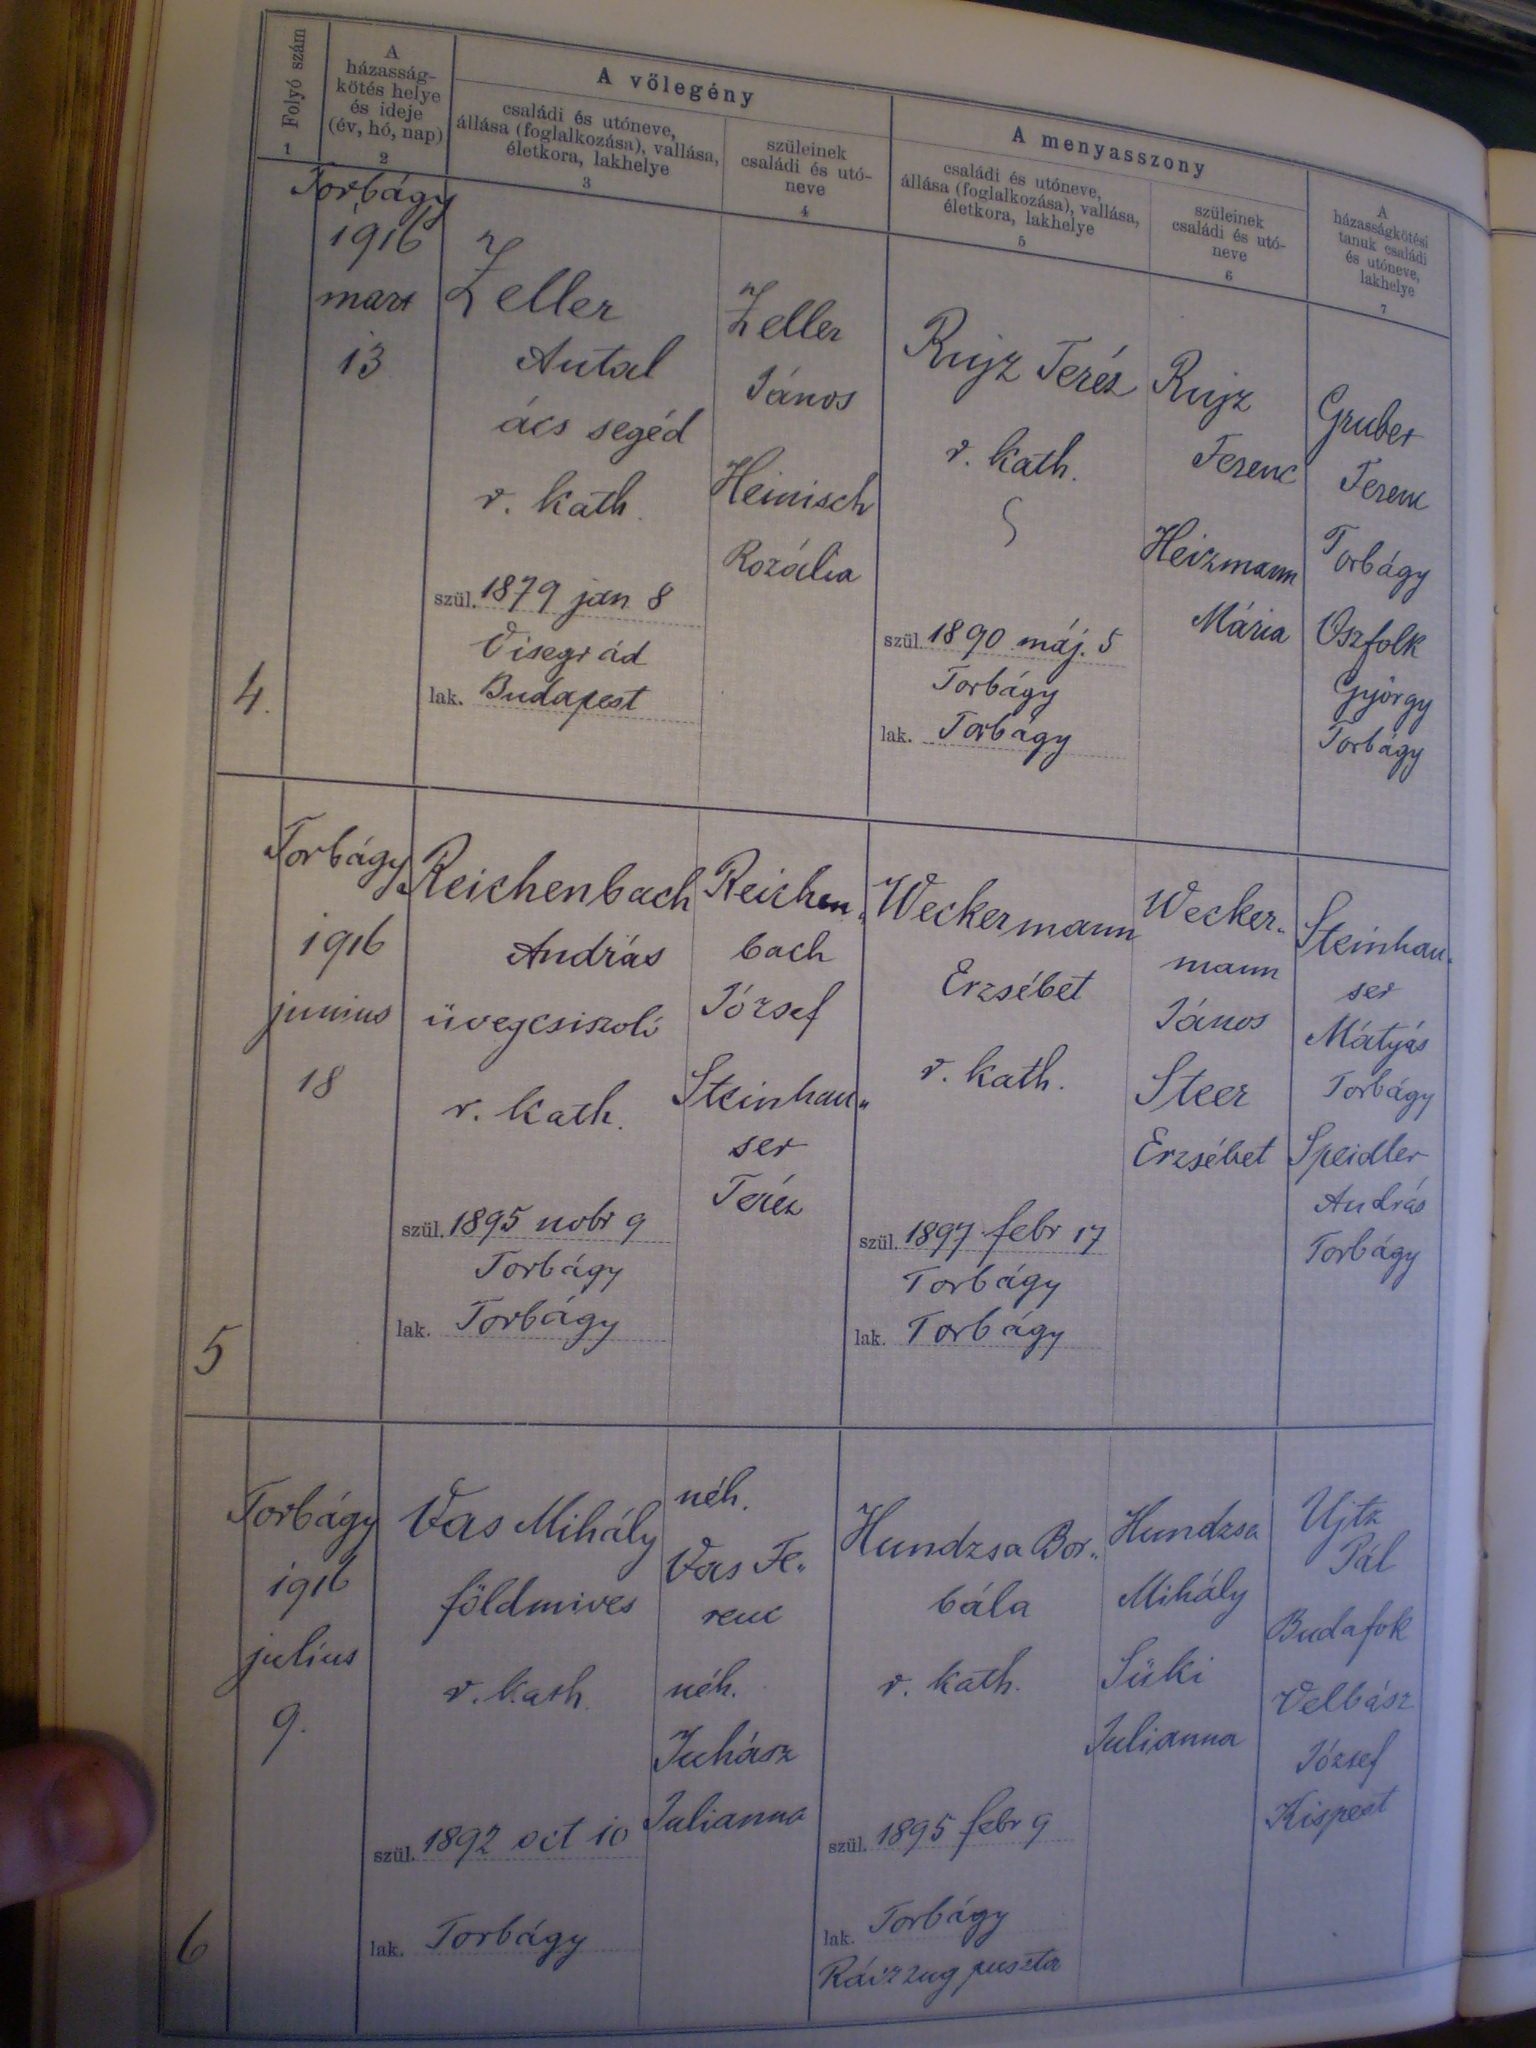 Folyó szám
1
A
házasság-
kötés helye
és ideje
(év, hó, nap)
2
A vőlegény
családi és utóneve,
állása (foglalkozása), vallása,
életkora, lakhelye
3
szüleinek
családi és utó-
neve
4
A menyasszony
családi és utóneve,
állása (foglalkozása), vallása,
életkora, lakhelye
5
szüleinek
családi és utó-
neve
6
A
házasságkötési
tanuk családi
és utóneve,
lakhelye
7
4.
Torbágy
1916
mart
13
Zeller
Antal
ács segéd
r. kath.
szül. 1879 jan 8
Visegrád
lak. Budapest
Zeller
János
Heinisch
Rozália
Rujz Teréz
r. kath.
szül. 1890 máj. 5
Torbágy
lak. Torbágy
Rujz
Ferenc
Heizmann
Mária
Gruber
Ferenc
Torbágy
Oszfolk
György
Torbágy
5
Torbágy
1916
junius
18
Reichenbach
András
üvegcsiszoló
r. kath.
szül. 1895 nobr 9
Torbágy
lak. Torbágy
Reichen„
bach
József
Steinhau„
ser
Teréz
Weckermann
Erzsébet
r. kath.
szül. 1897 febr 17
Torbágy
lak. Torbágy
Wecker„
mann
János
Steer
Erzsébet
Steinhau„
ser
Mátyás
Torbágy
Speidler
András
Torbágy
6
Torbágy
1916
július
9.
Vas Mihály
földmives
r. kath.
szül. 1892 oct 10
lak. Torbágy
néh.
Vas Fe„
renc
néh.
Juhász
Julianna
Hundzsa Bor„
bála
r. kath.
szül. 1895 febr 9
lak. Torbágy
puszta
Hundzsa
Mihály
Süki
Julianna
Ujtz
Pál
Budafok
Velbász
József
Kispest